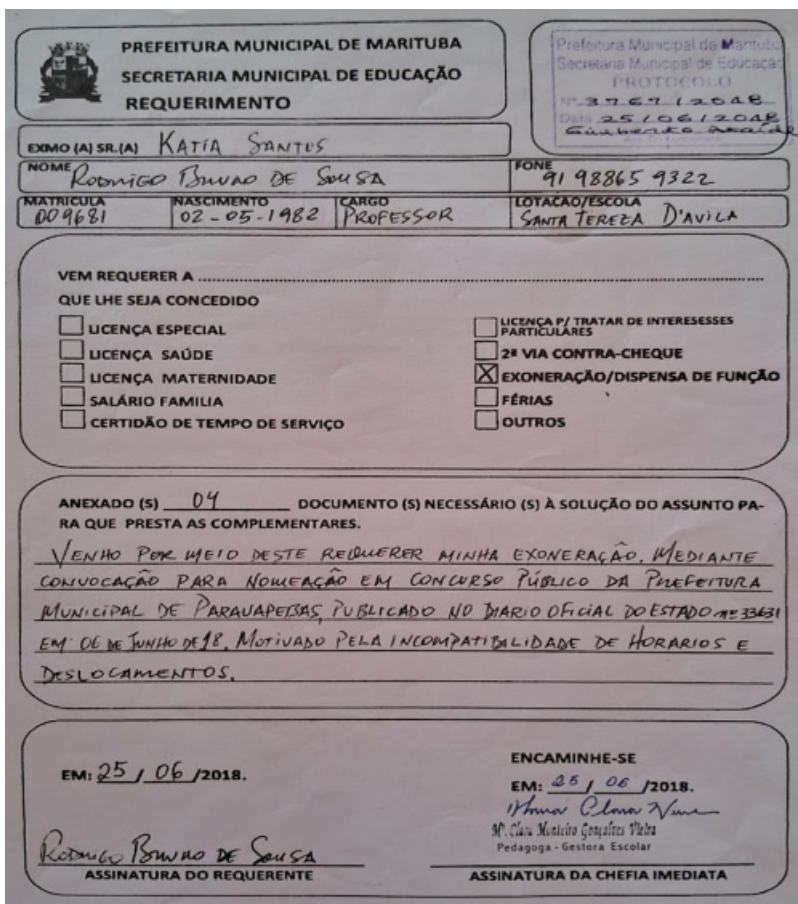 PREFEITURA MUNICIPAL DE MARITUBA
SECRETARIA MUNICIPAL DE EDUCAÇÃO
REQUERIMENTO
Prefeitura Municipal de Marituba
Secretaria Municipal de Educação
PROTOCOLO
Nº 3767/2018
Data 25/06/2018
EXMO (A) SR.(A) KATIA SANTOS
NOME RODRIGO BRUNO DE SOUSA
FONE 91 98865 9322
MATRICULA 009681
NASCIMENTO 02-05-1982
CARGO PROFESSOR
LOTACAO/ESCOLA SANTA TEREZA D'AVILA
VEM REQUERER A
QUE LHE SEJA CONCEDIDO
LICENÇA ESPECIAL
LICENÇA SAÚDE
LICENÇA MATERNIDADE
SALÁRIO FAMILIA
CERTIDÃO DE TEMPO DE SERVIÇO
LICENÇA P/ TRATAR DE INTERESESSES
PARTICULARES
2ª VIA CONTRA-CHEQUE
X EXONERAÇÃO/DISPENSA DE FUNÇÃO
FÉRIAS
OUTROS
ANEXADO (S) 04 DOCUMENTO (S) NECESSÁRIO (S) À SOLUÇÃO DO ASSUNTO PA-
RA QUE PRESTA AS COMPLEMENTARES.
VENHO POR MEIO DESTE REQUERER MINHA EXONERAÇÃO. MEDIANTE
CONVOCAÇÃO PARA NOMEAÇÃO EM CONCURSO PÚBLICO DA PREFEITURA
MUNICIPAL DE PARAUAPEBAS, PUBLICADO NO DIARIO OFICIAL DO ESTADO nº 33631
EM 06 DE JUNHO DE 18. MOTIVADO PELA INCOMPATIBILIDADE DE HORARIOS E
DESLOCAMENTOS.
EM: 25/06/2018.
RODRIGO BRUNO DE SOUSA
ASSINATURA DO REQUERENTE
ENCAMINHE-SE
EM: 25/06/2018.
Mª. Clara Monteiro Gonçalves Vieira
Pedagoga - Gestora Escolar
ASSINATURA DA CHEFIA IMEDIATA